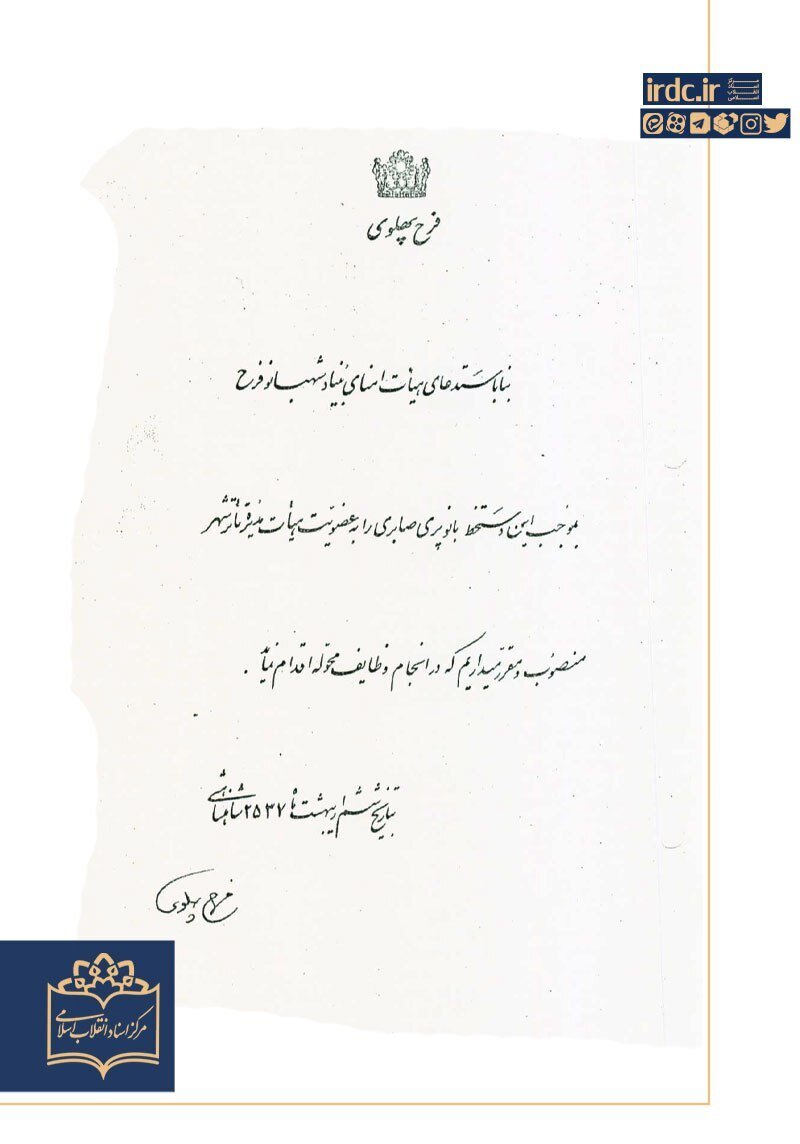 irdc.ir
مرکز
اسناد
انقلاب
اسلامی
فرح پهلوی
بنا باستدعای هیأت امنای بنیاد شهبانو فرح
بموجب این دستخط بانو پری صابری را به عضویت هیأت مدیره تاتر شهر
منصوب و مقرر میداریم که در انجام وظایف محوّله اقدام نماید .
بتاریخ ششم اردیبهشت ماه ۲۵۳۷ شاهنشاهی
فرح پهلوی
مرکز اسناد انقلاب اسلامی